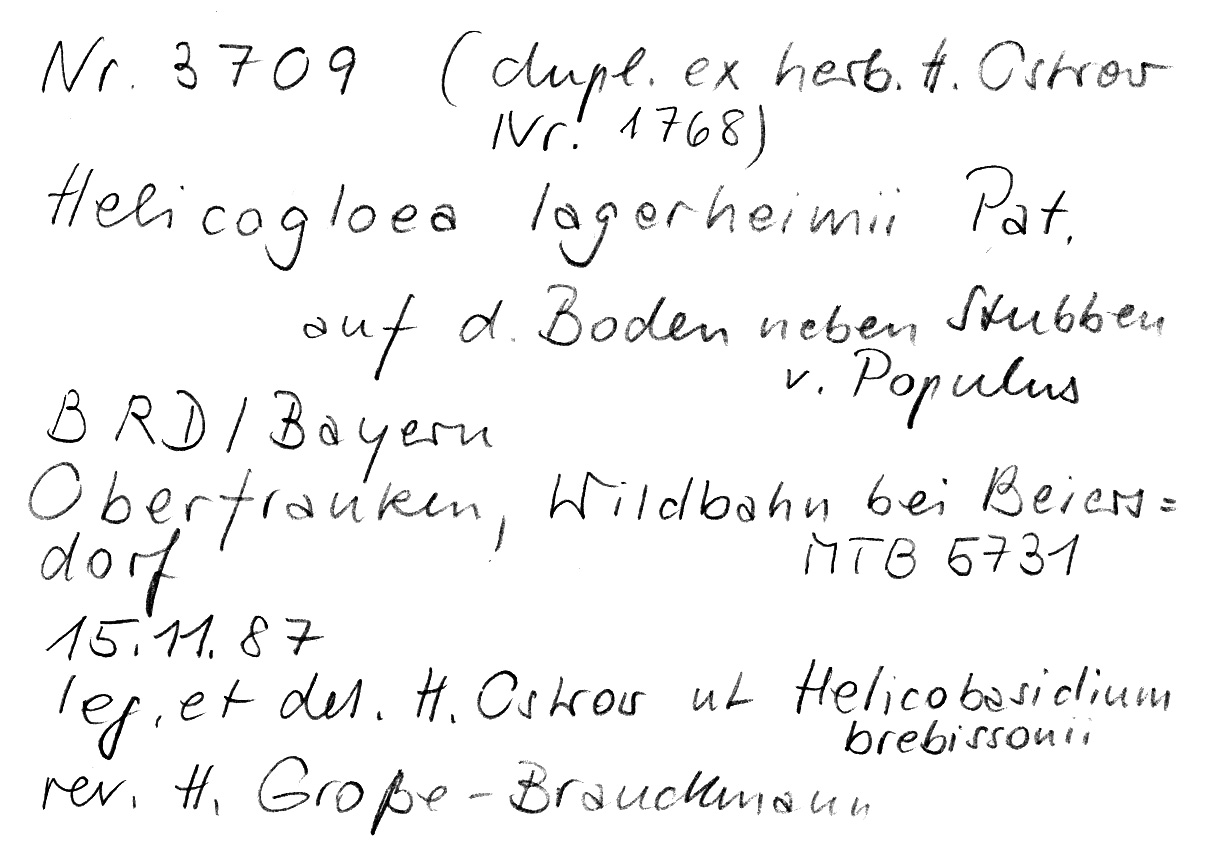 Nr. 3709 (dupl. ex herb. H. Ostrow
Nr. 1768)
Helicogloea lagerheimii Pat.
auf d. Boden neben Stubben
v. Populus
BRD/Bayern
Oberfranken, Wildbahn bei Beiers=
dorf MTB 5731
15.11.87
leg. et det. H. Ostrow ut Helicobasidium
brebissonii
rev. H. Große-Brauckmann